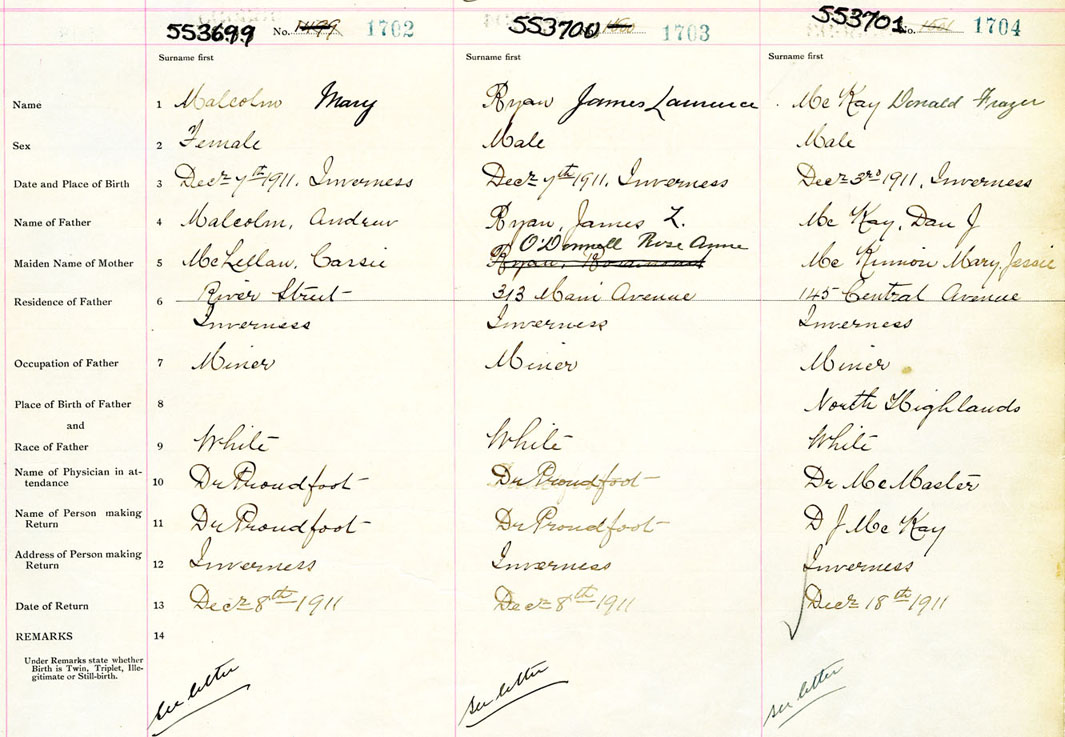 553699 No. 1499 1702 553700 No. 1500 1703 553701 No. 1501 1704
Surname first Surname first Surname first
Name 1 Malcolm Mary Ryan James Lawrence Mc Kay Donald Frazer
Sex 2 Female Male Male
Date and Place of Birth 3 Decr 7th 1911. Inverness Decr 7th 1911, Inverness Decr 3rd 1911, Inverness
Name of Father 4 Malcolm, Andrew Ryan, James L. Mc Kay, Dan J
O'Donnell Rose Anne
Maiden Name of Mother 5 McLellan, Cassie Ryan, Rosamond Mc Kinnon Mary, Jessie
Residence of Father 6 River Street 313 Main Avenue 145 Central Avenue
Inverness Inverness Inverness
Occupation of Father 7 Miner Miner Miner
Place of Birth of Father 8 North Highlands
and
Race of Father 9 White White White
Name of Physician in at-
tendance 10 Dr Proudfoot Dr Proudfoot Dr McMaster
Name of Person making
Return 11 Dr Proudfoot Dr Proudfoot D J Mc Kay
Address of Person making
Return 12 Inverness Inverness Inverness
Date of Return 13 Decr 8th 1911 Decr 8th 1911 Decr 18th 1911
REMARKS 14
Under Remarks state whether
Birth is Twin, Triplet, Ille-
gitimate or Still-birth.
see letter see letter see letter